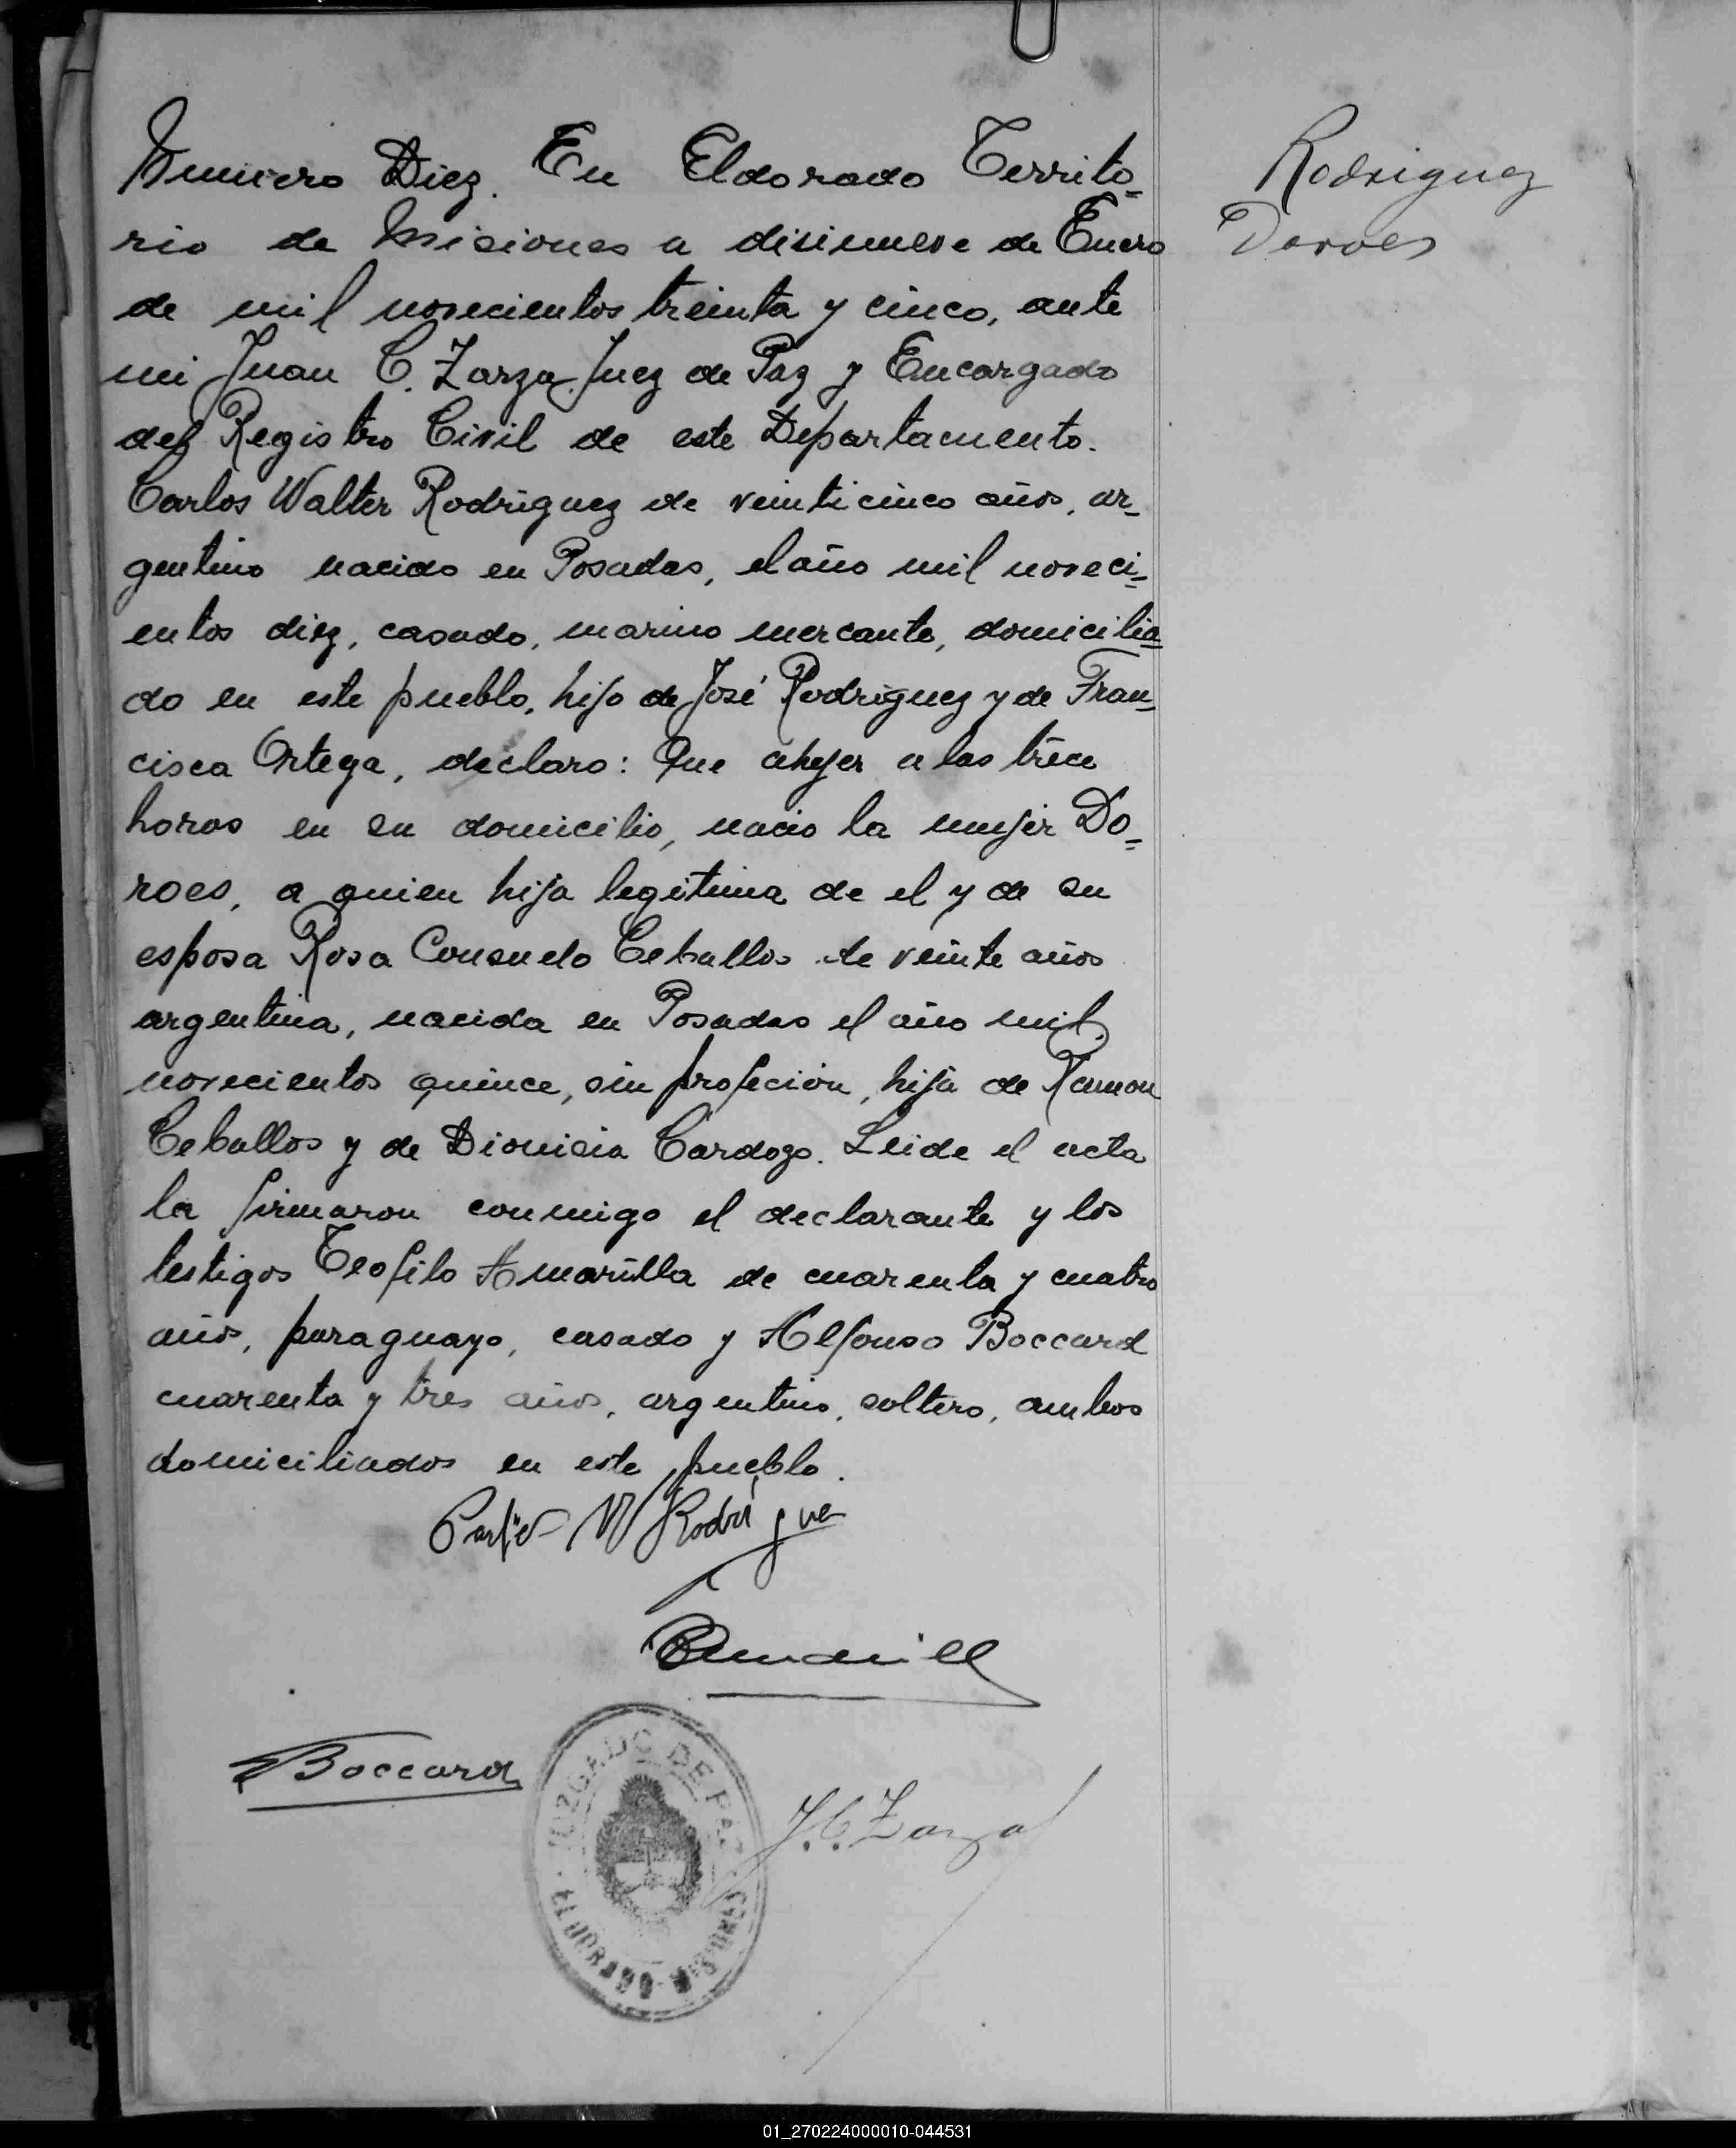 Numero Diez. En Eldorado Territo=
rio de Misiones a disinueve de Enero
de mil novecientos treinta y cinco, ante
mi Juan C. Zarza Juez de Paz y Encargado
del Registro Civil de este Departamento.
Carlos Walter Rodriguez de veinticinco años, ar_
gentino nacido en Posadas, el año mil noveci=
entos diez, casado, marino mercante, domicilia=
do en este pueblo, hijo de José Rodriguez y de Fran=
cisca Ortega, declaro: Que a las trece
horas en su domicilio, nacio la mujer Do=
roes, a quien hija legitima de el y de su
esposa Rosa Consuelo Ceballos de veinte años
argentina, nacida en Posadas el año mil
novecientos quince, sin profeción, hija de Ramon
Ceballos y de Dionisia Cardozo. Leide el acta
la firmaron conmigo el declarante y los
testigos Teofilo Amarilla de cuarenta y cuatro
años, paraguayo, casado y Alfonso Boccard
cuarenta y tres años, argentino, soltero, ambos
domiciliados en este pueblo.
Rodriguez
Doroes
W Rodriguez
Boccard
J. C. Zarza
JUZGADO DE PAZ
ELDORADO - MISIONES
01_270224000010-044531